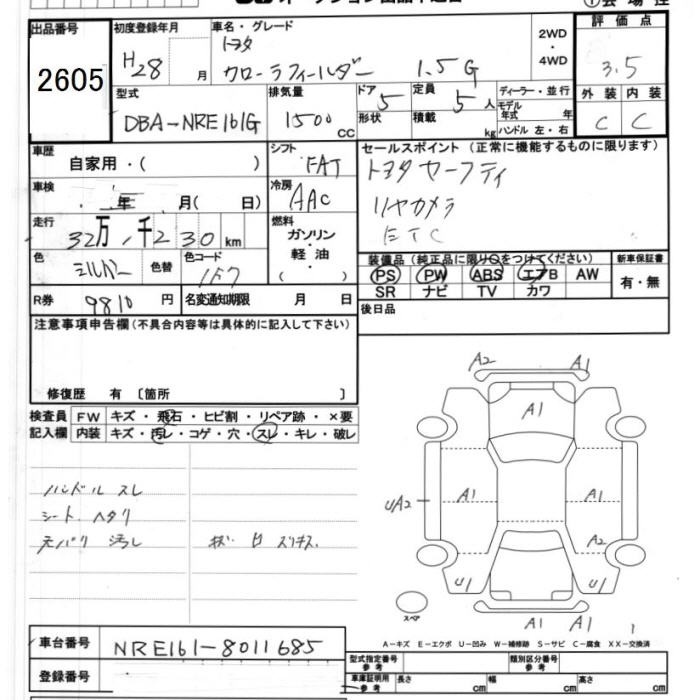 出品番号
2605
初度登録年月
H28 月
車名・グレード
トヨタ
カローラフィールダー 1.5G
2WD
・
4WD
評価点
3.5
型式
DBA-NRE161G
排気量
1500 cc
ドア
5
形状
定員
5 人
積載
kg
ディーラー・並行
モデル
年式 年
ハンドル 左・右
外装 内装
C C
車歴
自家用・( )
シフト
FAT
セールスポイント(正常に機能するものに限ります)
トヨタセーフティ
リヤカメラ
ETC
車検
年 月( 日)
冷房
AAC
走行
32万 千230km
燃料
ガソリン
・
軽油
( )
色
シルバー
色替
色コード
1F7
装備品(純正品に限り○をつけてください)
PS PW ABS エアB AW
SR ナビ TV カワ
新車保証書
有・無
R券
9810円
名変通知期限 月 日
後日品
注意事項申告欄(不具合内容等は具体的に記入して下さい)
修復歴 有〔箇所 〕
検査員
記入欄
FW キズ・飛石・ヒビ割・リペア跡・×要
内装 キズ・汚レ・コゲ・穴・スレ・キレ・破レ
ハンドル スレ
シート ヘタリ
A2 A1
A1
A1 A1
UA2
A2
U1 U1
A1 A1
スペア
A-キズ E-エクボ U-凹み W-補修跡 S-サビ C-腐食 XX-交換済
車台番号
NRE161-8011685
登録番号
型式指定番号
参考
類別区分番号
参考
車庫証明用
参考
長さ cm 幅 cm 高さ cm